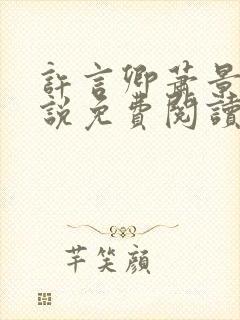 許言卿蕭景
說免費閱讀
芊笑顏